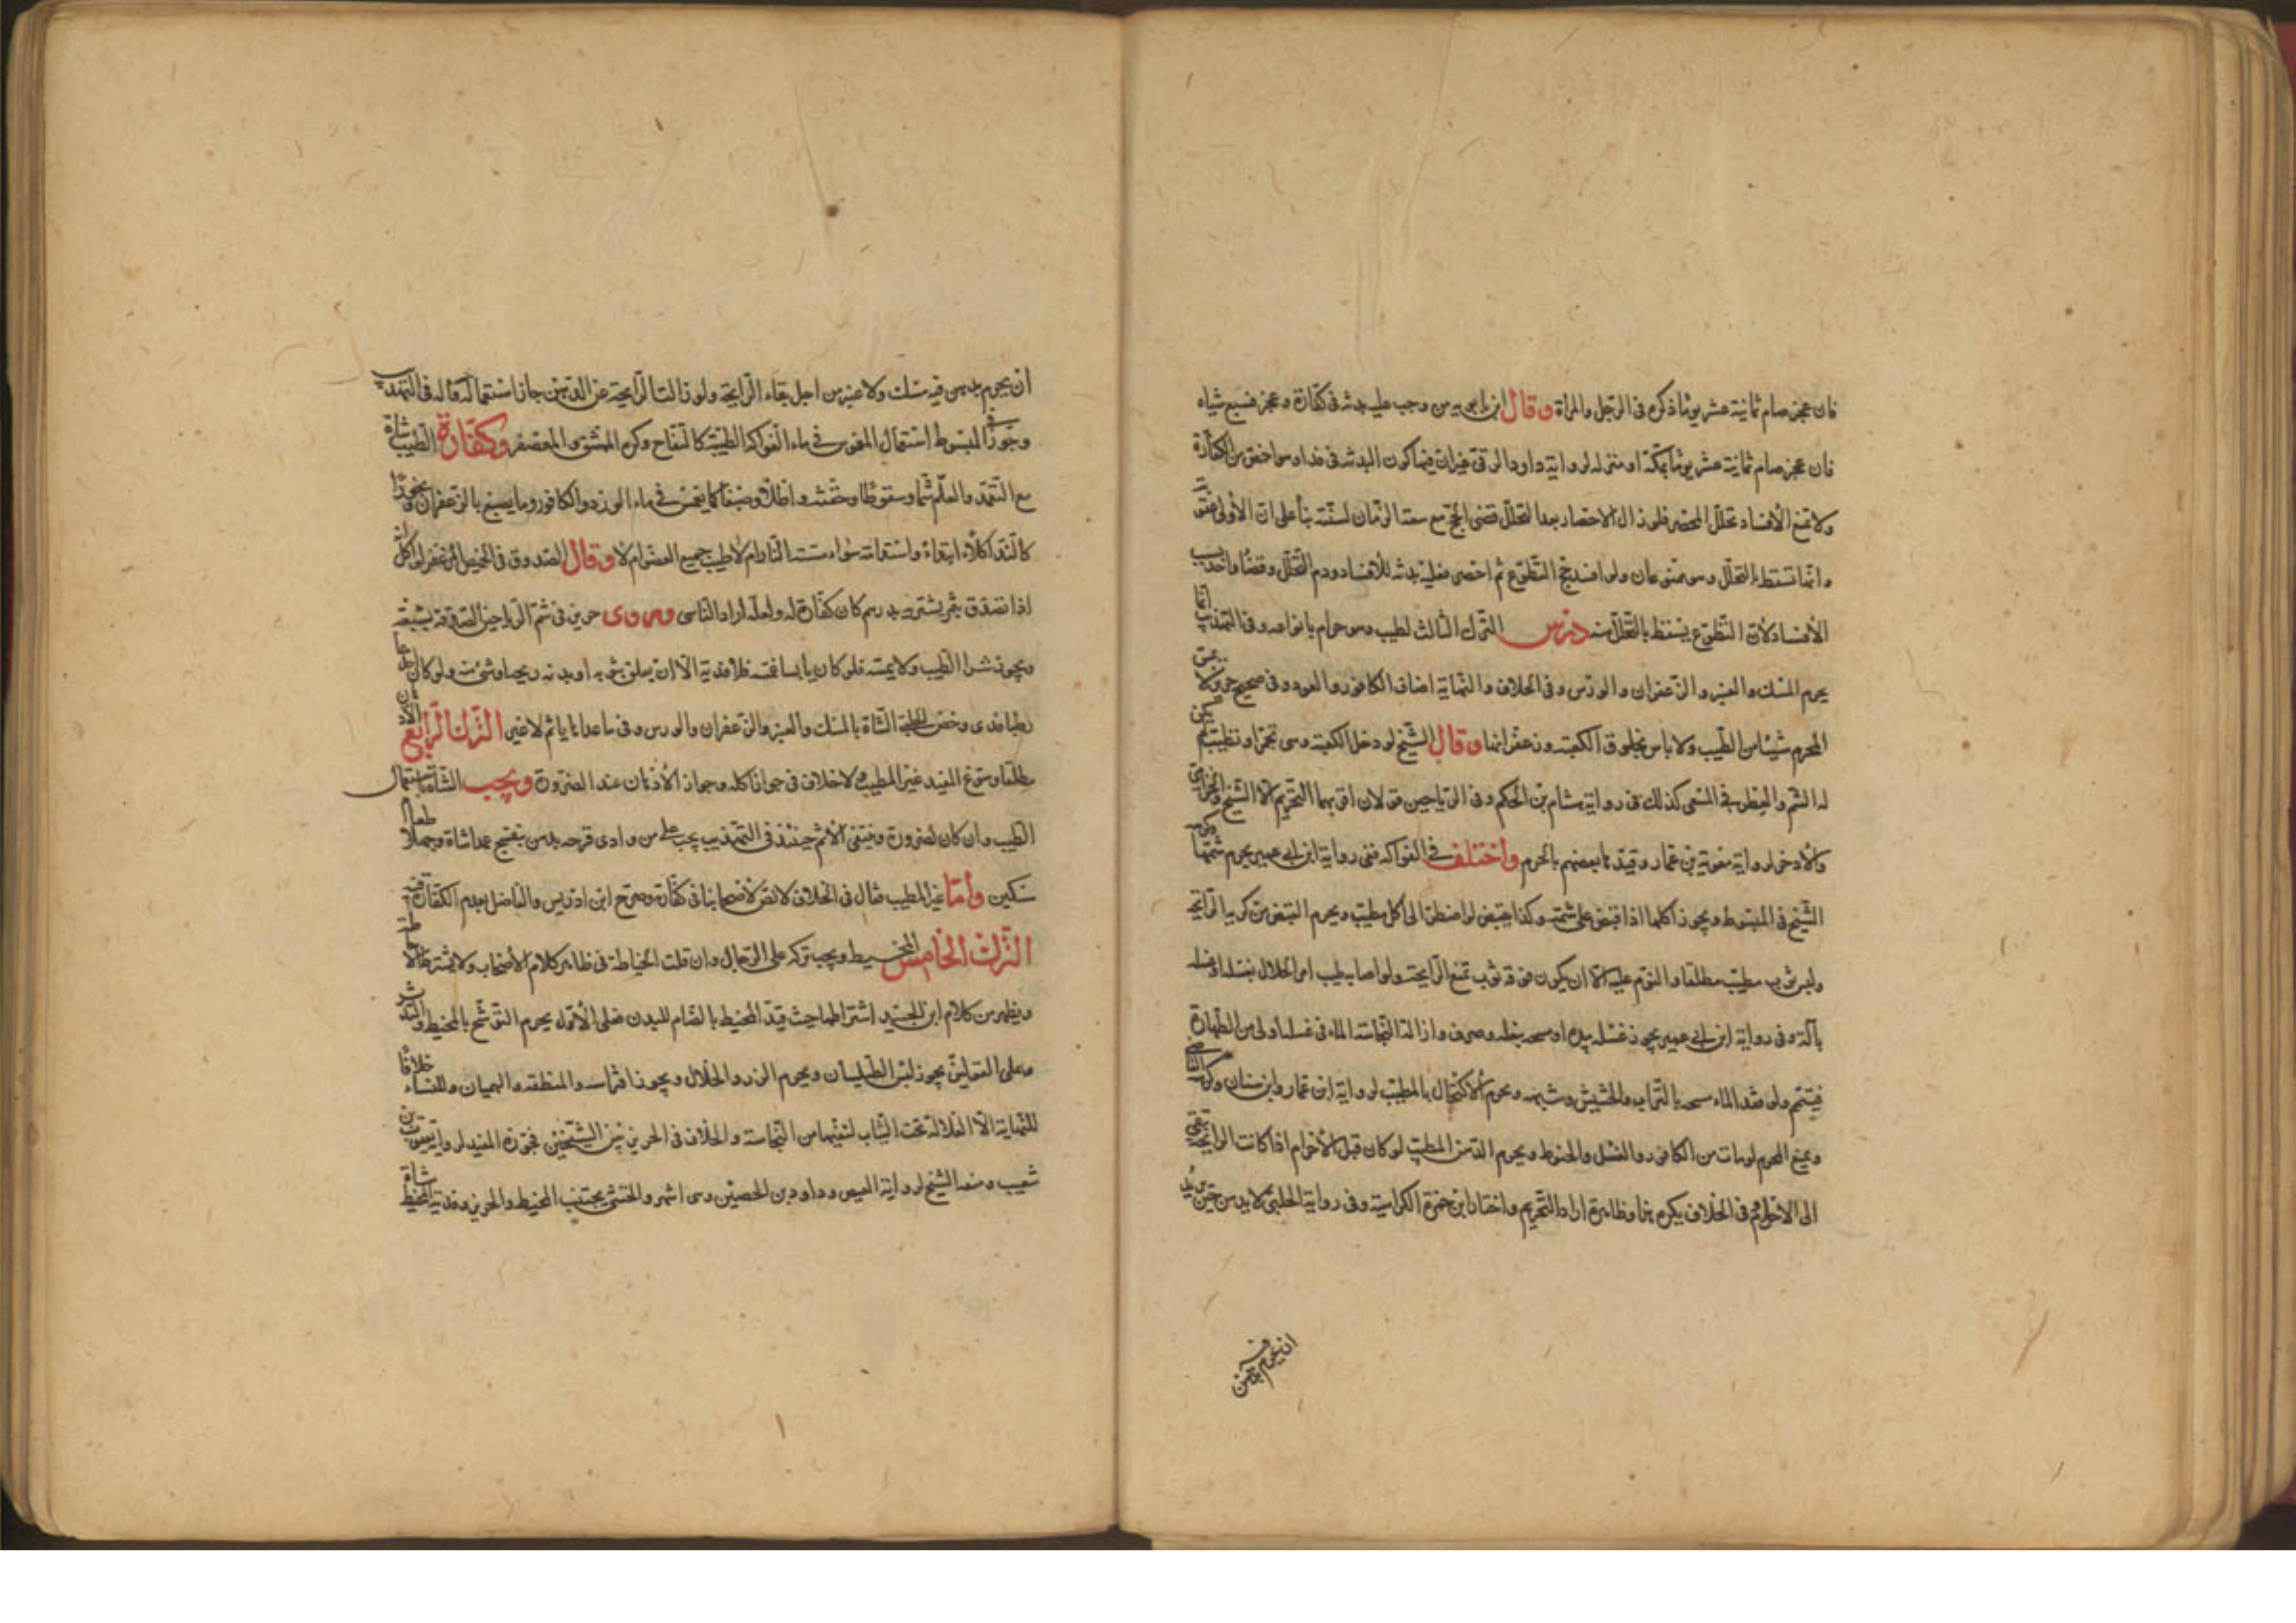 فان عجز صام ثمانية عشر يوما ذكره فى الرجل والمراة وقال ابن بابويه من وجب عليه بدنة فى كفارة وعجز فسبع شياه
فان عجز صام ثمانية عشر يوما بمكة او منزله لرواية داود الرقى غيران فيها كون البدنة فى فداء وهو اخص من الكفارة
ولا تمنع الافساد تحلل المحصر فلو زال الاحصار بعد التحلل قضى الحج مع سعة الزمان لسنته بناء على ان الاولى عقوبة
وانما تسقط بالتحلل وهو ممنوعان ولو افسد حج التطوع ثم احصر فعليه بدنة للافساد ودم التحلل وقضاء واحد بسبب
الافساد لان التطوع يسقط بالتحلل منه درس الترك الثالث الطيب وهو حرام بانواعه وفى التهذيب انما
يحرم المسك والعنبر والزعفران والورس وفى الخلاف والنهاية اضاف الكافور والعود وفى صحيح حريز لا يمس
المحرم شيئا من الطيب ولا باس بخلوق الكعبة وزعفرانها وقال الشيخ لو دخل الكعبة وهى تجمر او تطيب لم يكن
له الشم والعطر فى المسعى كذلك فى رواية هشام بن الحكم وفى الرياحين قولان اقربهما التحريم الا الشيح والخزامى
والاذخر لرواية معوية بن عمار وقيدها بعضهم بالحرم واختلف فى الفواكه ففى رواية ابن ابى عمير يحرم شمها وكرهه
الشيخ فى المبسوط ويجوز اكلها اذا قبض على شمه وكذا يقبض لو اضطر الى اكل مطيب ويحرم القبض من كريه الرائحة
ولبس ثوب مطيب مطلقا والنوم عليه الا ان يكون فوقه ثوب تمنع الرايحة ولو اصابه طيب امر الحلال بغسله او غسله
بآلة وفى رواية ابن ابى عمير يجوز غسله بيده او مسحه بنعله وصرف وازالة النجاسة الماء فى غسله اولى من الطهارة
فيتيمم ولو فقد الماء مسحه بالتراب والحشيش وشبهه ويحرم الاكتحال بالمطيب لرواية ابن عمار وابن سنان وكرهه القاضى
ويمنع المحرم لو مات من الكافور والغسل والحنوط ويحرم الدهن المطيب لو كان قبل الاحرام اذا كانت الرايحة تبقى
الى الاحرام وفى الخلاف يكره هنا وظاهره اراد التحريم واختار ابن حمزة الكراهية وفى رواية الحلبى لا يدهن حين يريد
ان يحرم بدهن فيه
ان يحرم بدهن فيه مسك ولا عنبر من اجل بقاء الرايحة ولو زالت الرايحة عن الدهن جاز استعماله قاله فى التهذيب
وجوز فى المبسوط استعمال المغموس فى ماء الفواكه الطيبة كالتفاح وكره الممشق والمعصفر وكفارة الطيب شاة
مع التعمد والعلم شما وسعوطا وحقنة واطلاء وصبغا كما يغمس فى ماء الورد والكافور وما يصبغ بالزعفران وبخورا
كالند اكلا ابتداء واستدامة سواء مسته النار ام لا طيب جميع العضو ام لا وقال الصدوق فى الخبيص المزعفر لو اكله
اذا تصدق بتمر يشتريه بدرهم كان كفارة له ولعله اراد الناسى وروى حريز فى شم الرياحين الصدقة بشبعه
ويجوز شراء الطيب ولا يمسه فلو كان يابسا فمسه فلا فدية الا ان يعلق بثوبه او بدنه ريحها وشئ منه ولو كان عامدا
رطبا فدى وخص الحلبى الشاة بالمسك والعنبر والزعفران والورس وفى ما عداها ياثم لا غير الترك الرابع الادهان
مطلقا وسوغ المفيد غير المطيب ولا خلاف فى جواز اكله وجواز الادهان عند الضرورة ويجب الشاة باستعمال
الطيب وان كان لضرورة وينتفى الاثم حينئذ فى التهذيب يجب على من داوى قرحه بدهن بنفسج عمدا شاة وجهلا طعام
مسكين واما غير المطيب فقال فى الخلاف لا نص لاصحابنا فى كفارة وصرح ابن ادريس والفاضل بعدم الكفارة فيه
الترك الخامس المخيط ويجب تركه على الرجال وان قلت الخياطة فى ظاهر كلام الاصحاب ولا يشترط الاحاطة
ويظهر من كلام ابن الجنيد اشتراطها حيث قيد المخيط بالضام للبدن فعلى الاول يحرم التوشح بالمخيط والتدثر
وعلى القولين يجوز لبس الطيلسان ويحرم الزر والخلال ويجوز افتراشه والمنطقة والهميان وللنساء خلافا
للنهاية الا الغلالة تحت الثياب لتقيها من النجاسة والخلاف فى الحرير بين الشيخين فجوزه المفيد لرواية يعقوب بن
شعيب ومنعه الشيخ لرواية العيص وداود بن الحصين وهى اشهر والخنثى يجتنب المخيط والحرير وفدية المخيط شاة